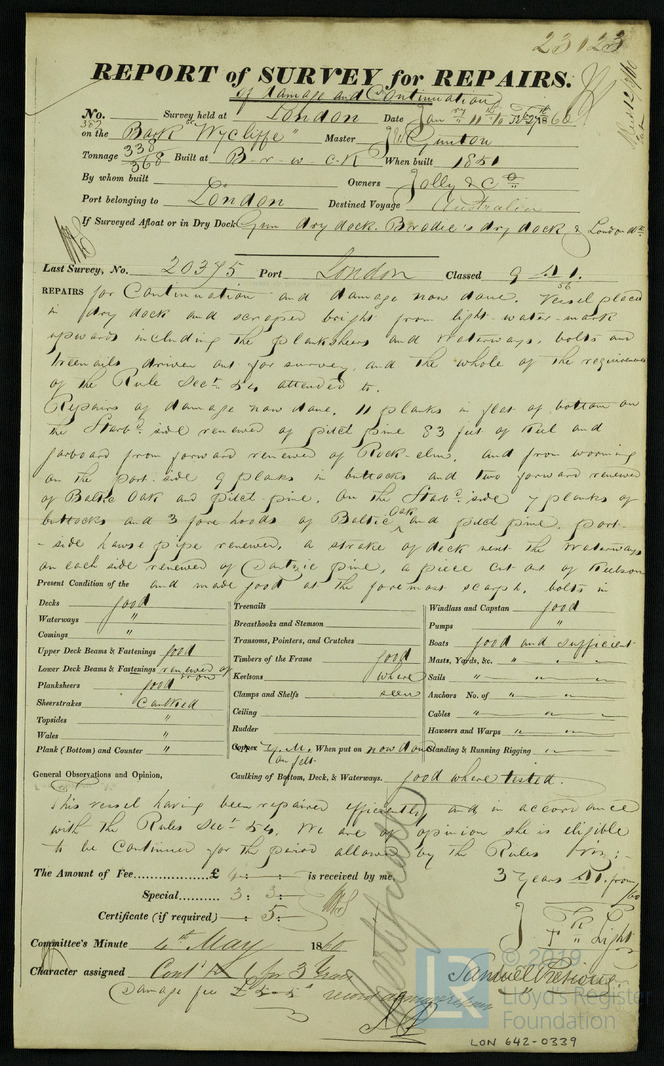 23123
REPORT of SURVEY for REPAIRS.
of Damage and Continuation
No. Survey held at London Date Jan
on the Bark "Wycliffe" Master Gunton
Tonnage 338 368 Built at B-r-w-c-k When built 1851
By whom built Owners Jolly & Co
Port belonging to London Destined Voyage Australia
If Surveyed Afloat or in Dry Dock Gun dry dock. Brodie's dry dock & London
Last Survey, No. 20395 Port London Classed 9 A 1.
REPAIRS for Continuation and damage now done. Vessel placed
in dry dock and scraped bright from light-water-mark
upwards including the planksheers and Waterways, bolts and
treenails driven out for survey, and the whole of the requirements
of the Rule Sect. 54 attended to.
Repairs of damage now done. 11 planks in flat of bottom on
the Starbd side renewed of pitch pine 83 feet of Keel and
garboard from forward renewed of Rock-elm, and from
on the port side 9 planks in buttocks and two forward renewed
of Baltic Oak and pitch-pine. On the Starbd side 7 planks of
buttocks and 3 fore hoods of Baltic Oak and pitch pine. port-
-side hawse pipe renewed, a strake of deck next the Waterways
on each side renewed of pine, a piece cut out of Keelson
and made good at the foremost scarph, bolts in
Present Condition of the
Decks good
Waterways "
Comings "
Upper Deck Beams & Fastenings good
Lower Deck Beams & Fastenings renewed of iron
Planksheers good
Sheerstrakes Caulked
Topsides "
Wales "
Plank (Bottom) and Counter "
Treenails
Breasthooks and Stemson
Transoms, Pointers, and Crutches
Timbers of the Frame good
Keelsons where
Clamps and Shelfs seen
Ceiling
Rudder
Copper Y.M. When put on now done
on felt
Windlass and Capstan good
Pumps "
Boats good and sufficient
Masts, Yards, &c. " " "
Sails " " "
Anchors No. of " " "
Cables " " "
Hawsers and Warps " " "
Standing & Running Rigging " "
General Observations and Opinion, Caulking of Bottom, Deck, & Waterways. good where tested.
This vessel having been repaired efficiently and in accordance
with the Rules Sect. 54. We are of opinion she is eligible
to be Continued for the period allowed by the Rules viz:-
3 Years A1. from
/60
The Amount of Fee £ is received by me,
Special 3: 3:
Certificate (if required) 5:
Light
Committee's Minute 4th May 1860
Samuel
Character assigned Cont'd A 1 for 3 Years
Damage fee £5-5
© 2019
LR
Lloyd's Register
Foundation
LON 642-0339